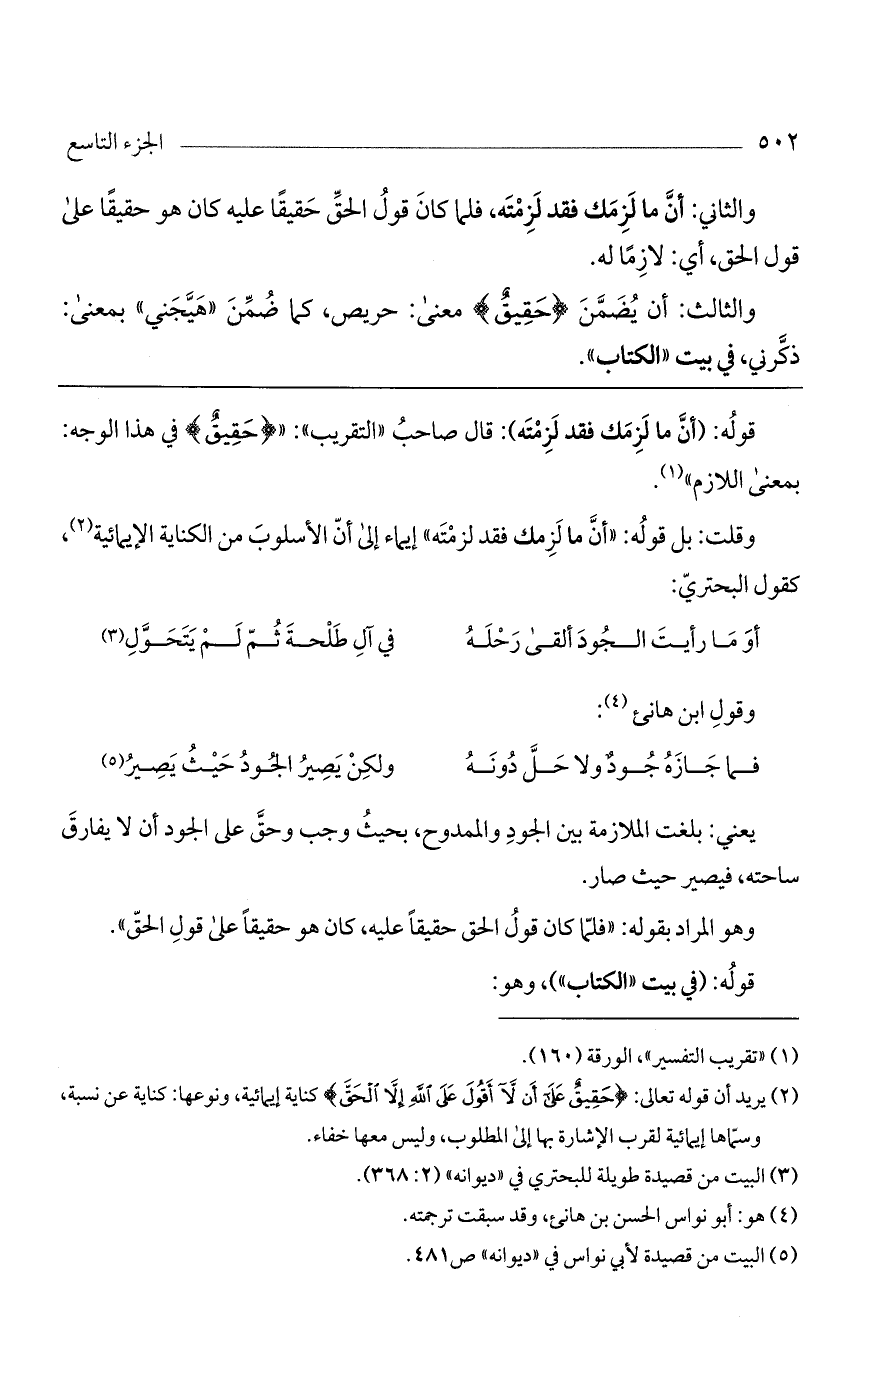 ٥٠٢ الجزء التاسع
والثاني: أنَّ ما لَزِمَك فقد لَزِمْتَه، فلما كانَ قولُ الحقِّ حَقيقًا عليه كان هو حقيقًا علىٰ
قول الحق، أي: لازِمًا له.
والثالث: أن يُضَمَّنَ ﴿حَقِيقٌ﴾ معنىٰ: حريص، كما ضُمِّنَ «هَيَّجَني» بمعنىٰ:
ذكَّرني، في بيت «الكتاب».
قولُه: (أنَّ ما لَزِمَك فقد لَزِمْتَه): قال صاحبُ «التقريب»: «﴿حَقِيقٌ﴾ في هذا الوجه:
بمعنىٰ اللازم»(١).
وقلت: بل قولُه: «أنَّ ما لَزِمك فقد لزمْتَه» إيماء إلىٰ أنّ الأسلوبَ من الكناية الإيمائية(٢)،
كقول البحتريّ:
أوَ مَـا رأيـتَ الـجُودَ ألقـىٰ رَحْلَـهُ في آلِ طَلْحـةَ ثُـمّ لَـمْ يَتَحَـوَّلِ(٣)
وقولِ ابن هانئ(٤):
فـما جَـازَهُ جُـودٌ ولا حَـلَّ دُونَـهُ ولكِنْ يَصِيرُ الجُودُ حَيْـثُ يَصِـيرُ(٥)
يعني: بلغت الملازمة بين الجودِ والممدوح، بحيثُ وجب وحقَّ على الجود أن لا يفارقَ
ساحته، فيصير حيث صار.
وهو المراد بقوله: «فلمّا كان قولُ الحق حقيقاً عليه، كان هو حقيقاً علىٰ قولِ الحقّ».
قولُه: (في بيت «الكتاب»)، وهو:
(١) «تقريب التفسير»، الورقة (١٦٠).
(٢) يريد أن قوله تعالى: ﴿حَقِيقٌ عَلَىٰٓ أَن لَّآ أَقُولَ عَلَى ٱللَّهِ إِلَّا ٱلْحَقَّ﴾ كناية إيمائية، ونوعها: كناية عن نسبة،
وسمّاها إيمائية لقرب الإشارة بها إلىٰ المطلوب، وليس معها خفاء.
(٣) البيت من قصيدة طويلة للبحتري في «ديوانه» (٢: ٣٦٨).
(٤) هو: أبو نواس الحسن بن هانئ، وقد سبقت ترجمته.
(٥) البيت من قصيدة لأبي نواس في «ديوانه» ص٤٨١.